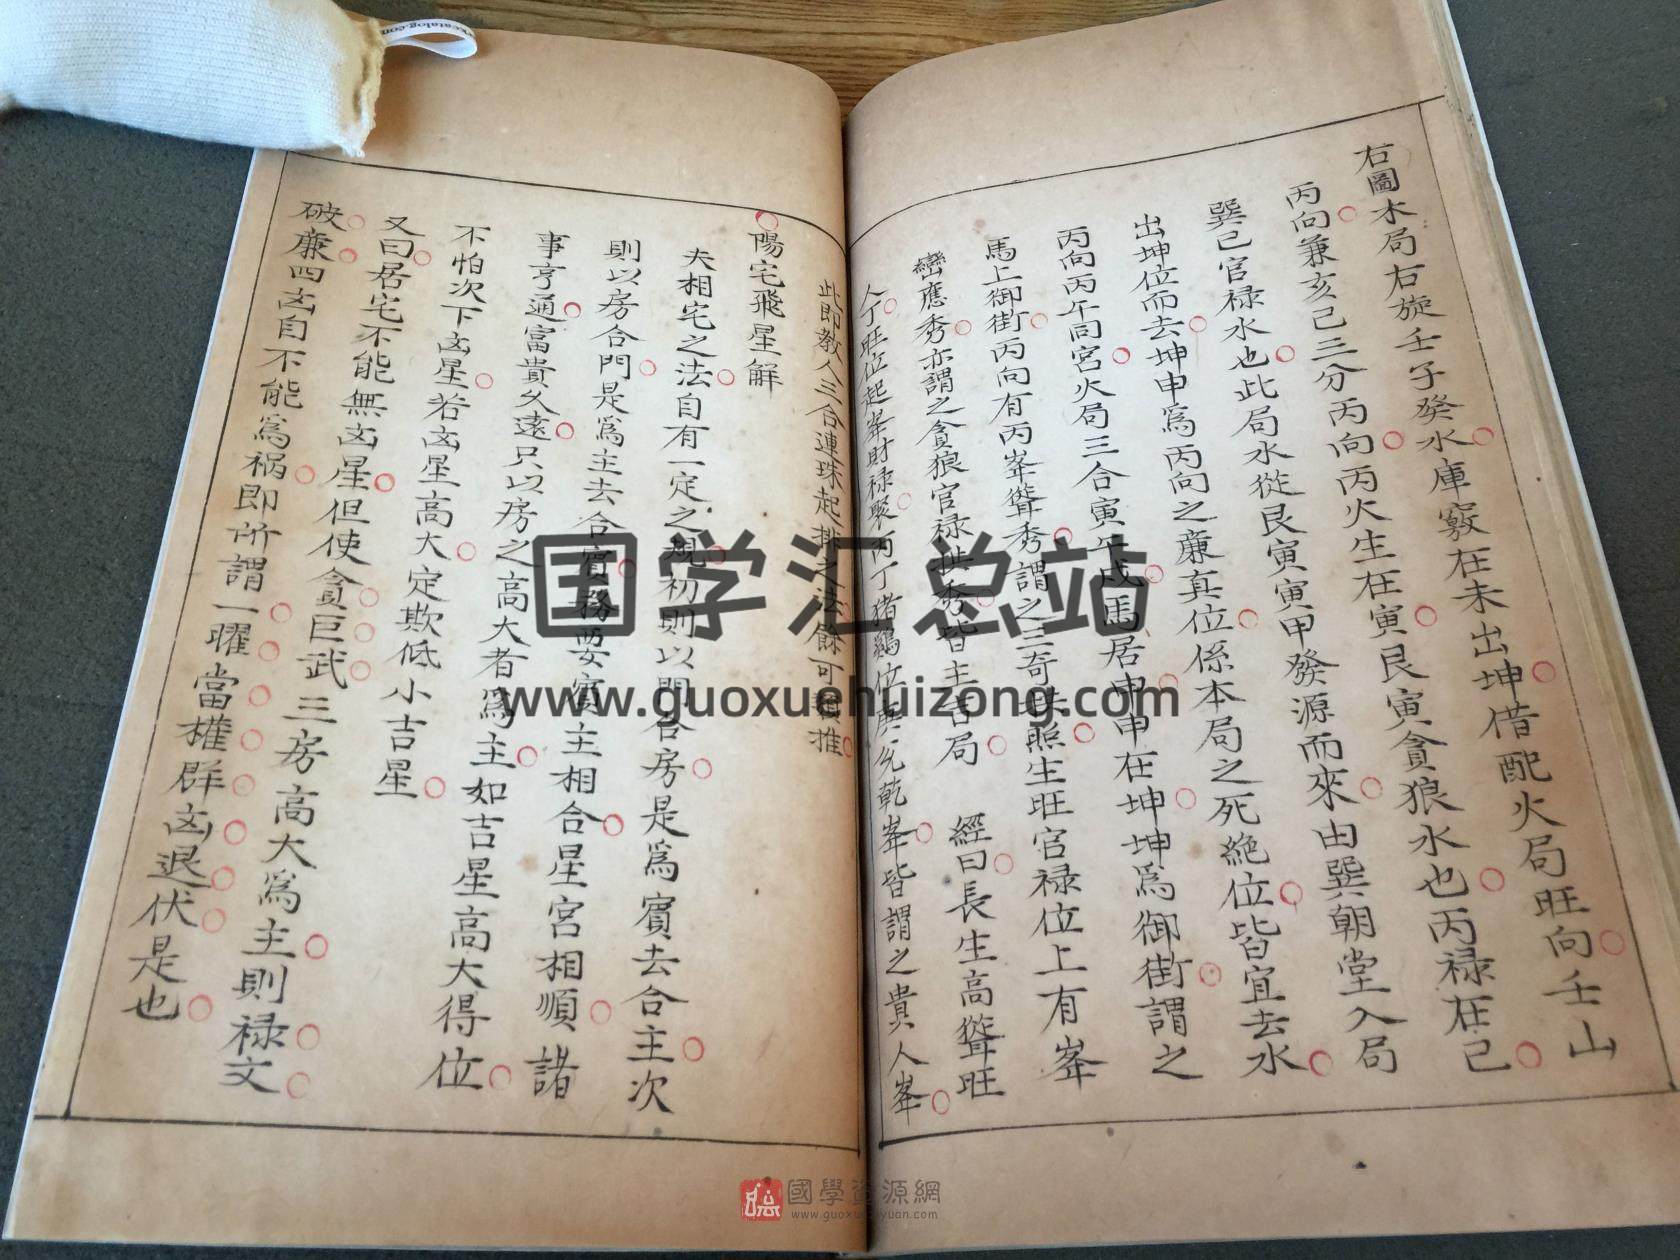 右圖水局右旋壬子癸水庫竅在未出坤借配火局旺向壬山
丙向兼亥巳三分丙向丙火生在寅艮寅貪狼水也丙禄在己
巽己官禄水也此局水從艮寅寅甲發源而來由巽朝堂入局
出坤位而去坤申爲丙向之廉真位係本局之死絶位皆宜去水
丙向丙午同宮火局三合寅午戌馬居申申在坤坤爲御街謂之
馬上御街丙向有丙峯聳秀謂之三奇珠照生旺官禄位上有峯
巒應秀亦謂之貪狼官禄拱秀皆主吉局 經曰長生高聳旺
人丁旺位起峯財禄聚丙丁猪鷄位庚兊乾峯皆謂之貴人峯
此即教人三合連珠起排之法餘可類推
陽宅飛星解
夫相宅之法自有一定之規初則以門合房是爲賓去合主次
則以房合門是爲主去合賓務要賓主相合星宮相順諸
事亨通富貴久遠只以房之高大者爲主如吉星高大得位
不怕次下凶星若凶星高大定欺低小吉星
又曰居宅不能無凶星但使貪巨武三房高大爲主則禄文
破廉四凶自不能爲禍即所謂一曜當權群凶退伏是也
国学汇总站
www.guoxuehuizong.com
國學資源網
www.guoxueziyuan.com